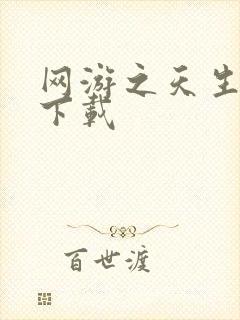 网游之天生
下载
百世渡